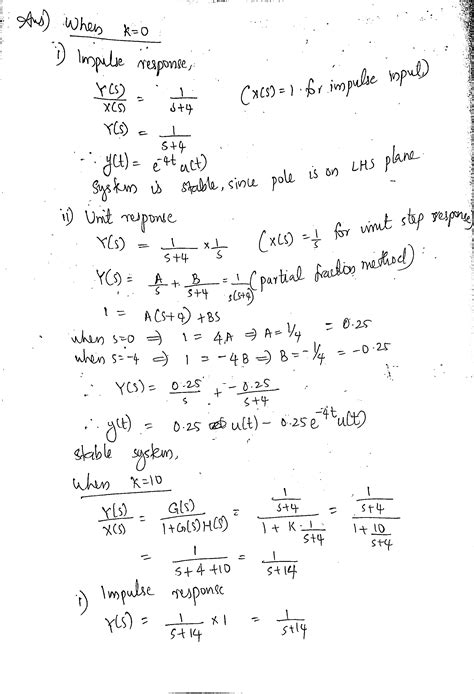 Ans) When K=0
i) Impulse response,
Y(S)/X(S) = 1/(s+4) (X(S)=1 for impulse input)
Y(S) = 1/(s+4)
∴ y(t) = e^-4t u(t)
System is stable, since pole is on LHS plane
ii) Unit response
Y(S) = 1/(s+4) × 1/s (X(S) = 1/s for unit step response)
Y(S) = A/s + B/(s+4) = 1/(s(s+4)) (partial fraction method)
1 = A(s+4) + BS
when s=0 ⇒ 1 = 4A ⇒ A = 1/4 = 0.25
when s=-4 ⇒ 1 = -4B ⇒ B = -1/4 = -0.25
∴ Y(S) = 0.25/s + -0.25/(s+4)
∴ y(t) = 0.25 u(t) - 0.25 e^-4t u(t)
stable system,
When K=10
Y(S)/X(S) = G(S)/(1+G(S)H(S)) = (1/(s+4))/(1+K·1/(s+4)) = (1/(s+4))/(1+10/(s+4))
= 1/(s+4+10) = 1/(s+14)
i) Impulse response
Y(S) = 1/(s+14) × 1 = 1/(s+14)